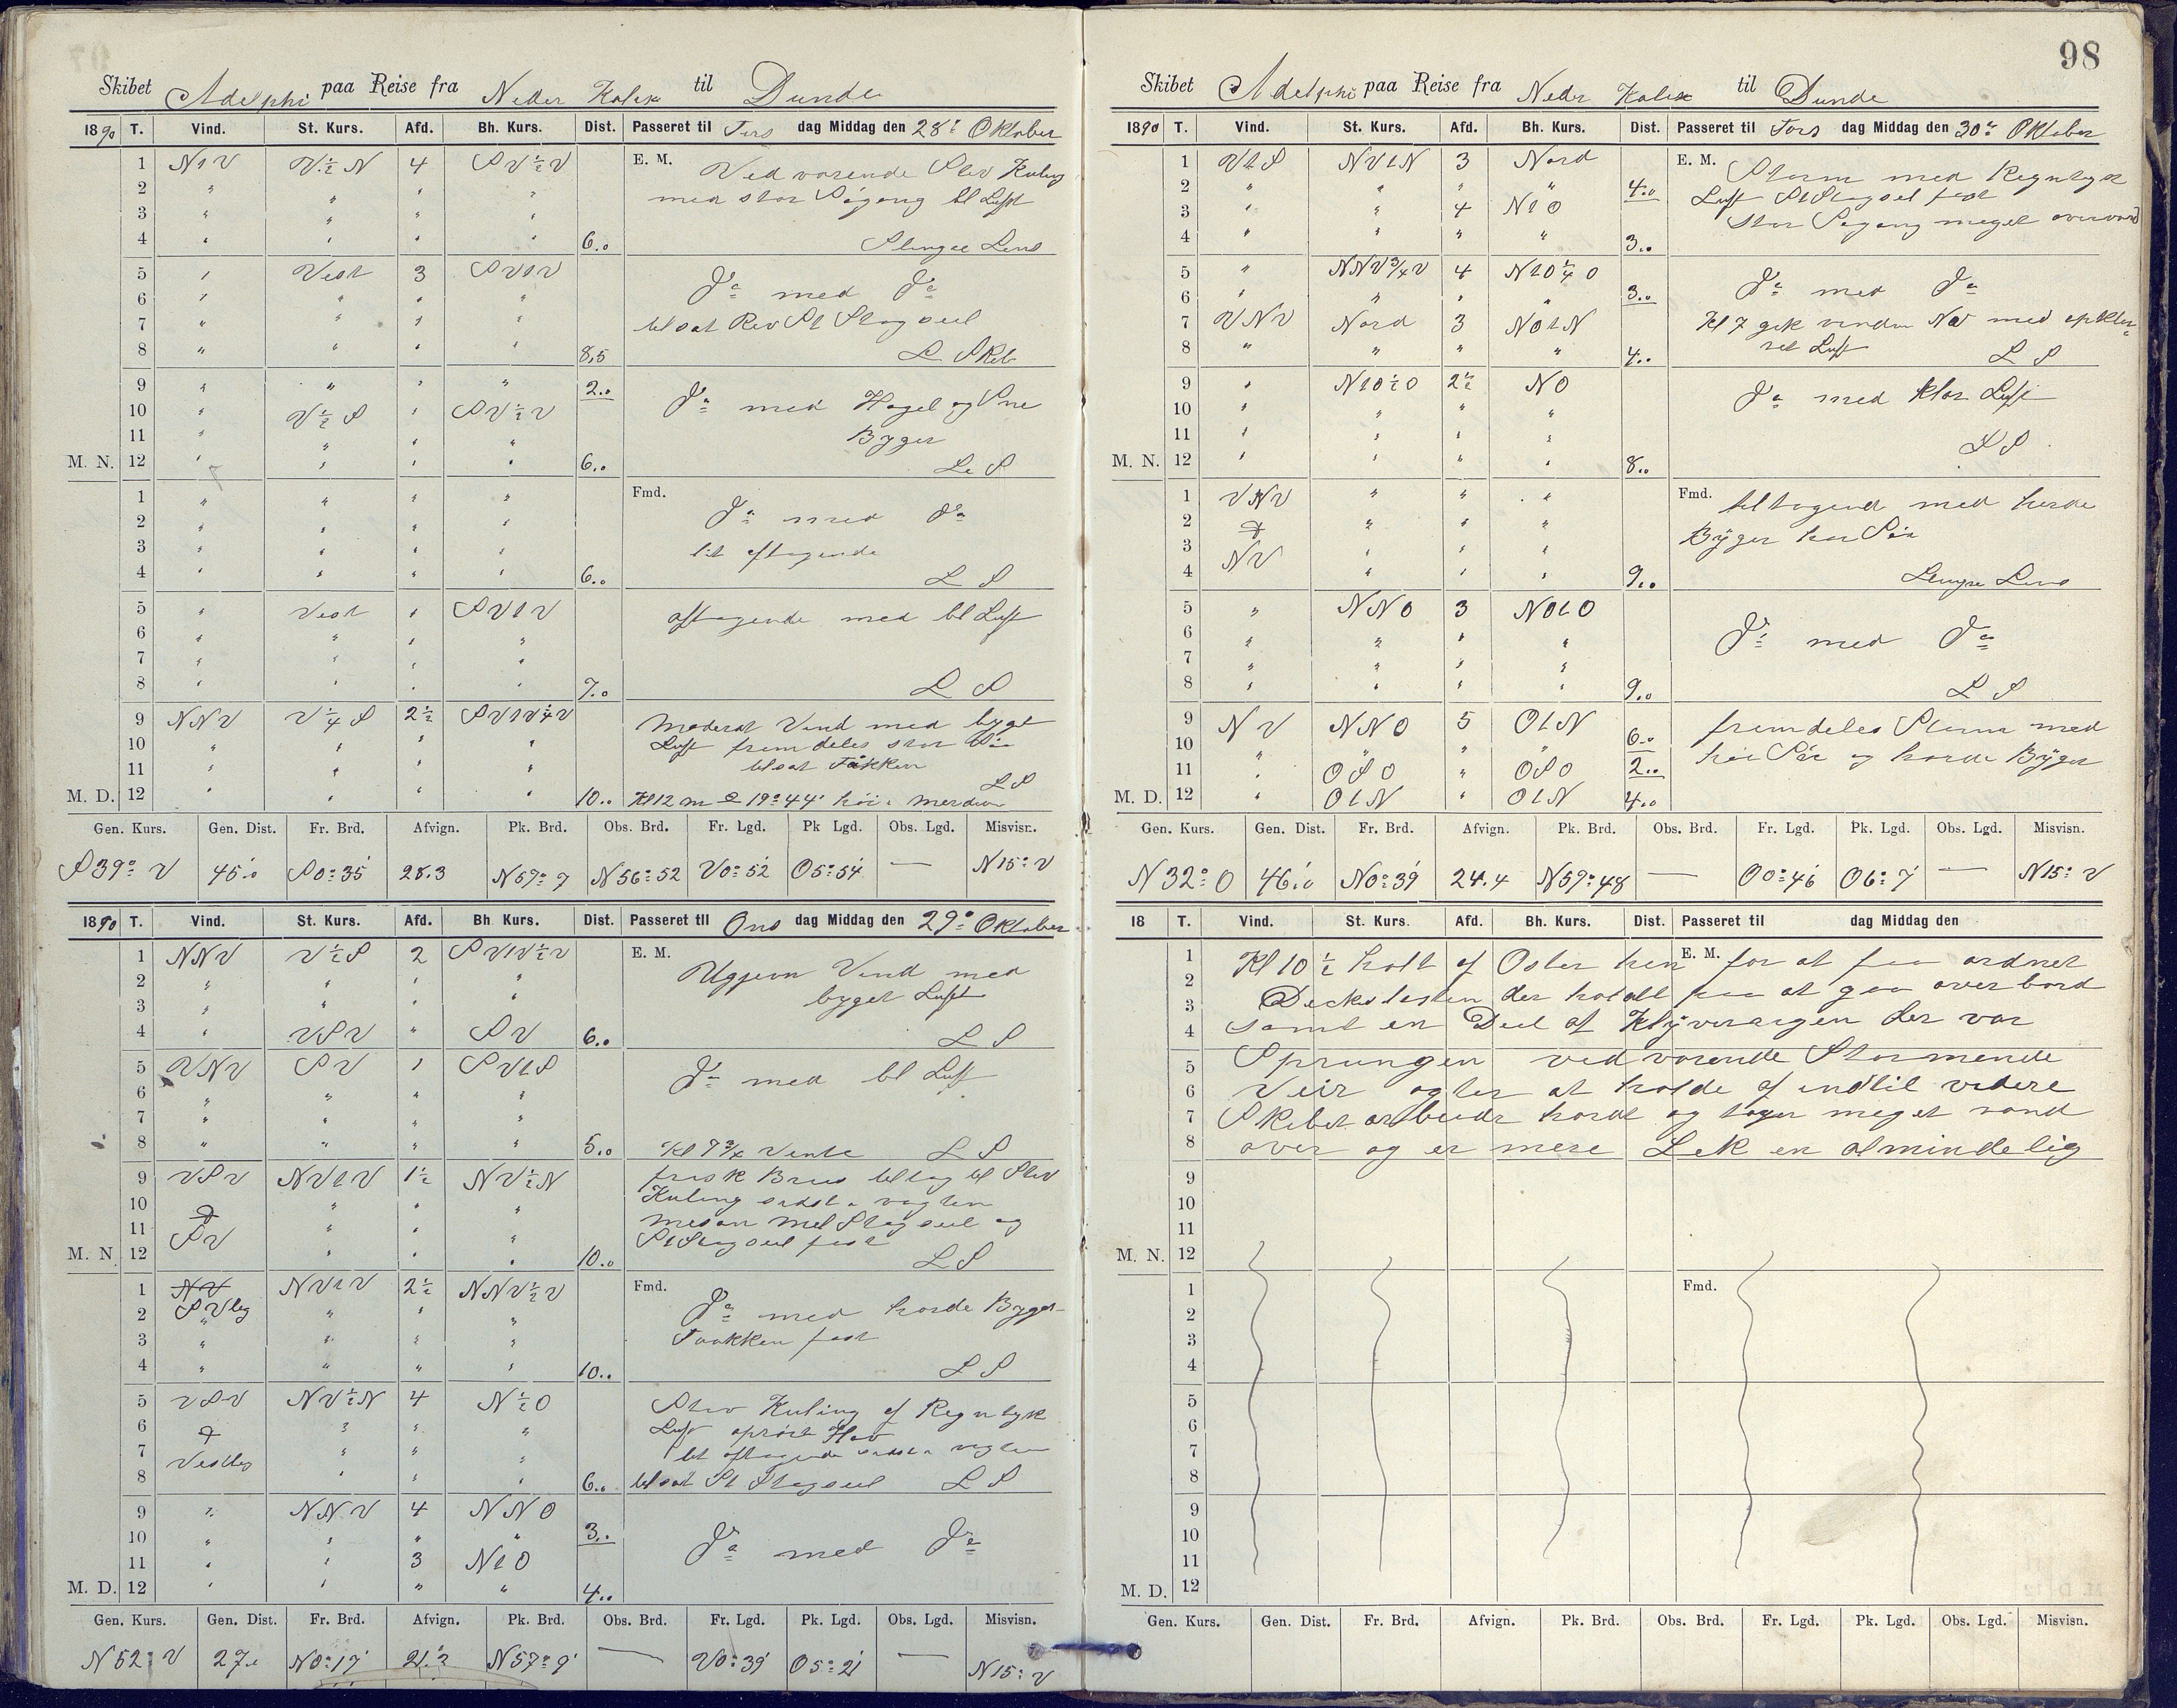 98
Skibet Adelphi paa Reise fra Neder Kalix til Dunde
1890 T. Vind. St. Kurs. Afd. Bh. Kurs. Dist. Passeret til Tors dag Middag den 28de Oktober
1 NtV V½N 4 SV½V E. M. Vedvarende Stiv Kuling
2 " " " " med stor Søgang bl Luft
3 " " " "
4 " " " " 6.0 Slinger Lens
5 " Vest 3 SVtV Do med Do
6 " " " "
7 " " " " tilsat Rev St Stagseil
8 " " " " 8,5 L Skib
9 " " " " 2.0 Do med Hagel og Sne
10 " V½S " SV½V
11 " " " " Byger
M. N. 12 " " " " 6.0 L S
1 " " " " Fmd. Do med Do
2 " " " "
3 " " " " lit aftagende
4 " " " " 6.0 L S
5 " Vest " SVtV aftagende med bl Luft
6 " " " "
7 " " " "
8 " " " " 7.0 L S
9 NNV V¼S 2½ SVtV¼V Moderat Vind med byget
10 " " " " Luft fremdeles stor Sø
11 " " " " tilsat Fåkken L S
M. D. 12 " " " " 10.0 Kl 12 m 19°44'
Gen. Kurs. Gen. Dist. Fr. Brd. Afvign. Pk. Brd. Obs. Brd. Fr. Lgd. Pk Lgd. Obs. Lgd. Misvisn.
S 39° V 45.0 S 0°35' 28.3 N 57° 7 N 56°52 V 0°52' O 5°54' — N 15° V
1890 T. Vind. St. Kurs. Afd. Bh. Kurs. Dist. Passeret til Ons dag Middag den 29de Oktober
1 NNV V½S 2 SVtV½V E. M. Ugjevn Vind med
2 " " " "
3 " " " " byget Luft
4 " VSV " SV 6.0 L S
5 VNV SV " SVtS Do med bl Luft
6 " " " "
7 " " " "
8 " " " " 5.0 Kl 7¾ Vente L S
9 VSV NVtV 1½ NV½N frisk Bris tiltog til Stiv
10 " " " Kuling sidst a vagten
11 SV " " " Mesan Mel Stagseil og
M. N. 12 " " " 10.0 St Stagseil fast L S
1 NV NVtV 2½ NNV½V Fmd. Do med haarde Byger
2 SVleg " " "
3 " " " Taakken fast
4 " " " " 10.. L S
5 VSV NV½N 4 N½O Stiv Kuling af Regntyk
6 " " " Luft oprört Hav
7 Vestleg " " " lit aftagende sidst a vagten
8 " " " 6.. tilsat St Stagseil L S
9 " NNV 4 NNO
10 " " " " 3.. Do med Do
11 " " 3 NtO
M. D. 12 " " " " 4..
Gen. Kurs. Gen. Dist. Fr. Brd. Afvign. Pk. Brd. Obs. Brd. Fr. Lgd. Pk. Lgd. Obs. Lgd. Misvisn.
N 52° V 27. N 0°17' 21.2 N 57° 9' — V 0°39' O 5° 21' — N 15° V
Skibet Adelphi paa Reise fra Neder Kalix til Dunde
1890 T. Vind. St. Kurs. Afd. Bh. Kurs. Dist. Passeret til Tors dag Middag den 30te Oktober
1 VtS NVtN 3 Nord E. M. Storm med Regntyk
2 " " " " 4.0 Luft St Stagseil fast
3 " " 4 NtO Stor Søgang meget overvand
4 " " " " 3..
5 " NNV¾V 4 NtO¼O Do med Do
6 " " " " 3..
7 VNV Nord 3 NOtN Kl 7 gik vinden NV med opkla-
8 " " " " 4.. ret Luft L S
9 " NtO½O 2½ NO Do med klar Luft
10 " " " "
11 " " " " L S
M. N. 12 " " " " 8..
1 VNV " " " Fmd. tiltagend med harde
2 " " " Byger hør Söe
3 NV " " "
4 " " " 9.. Lens
5 " NNO 3 NOtO
6 " " " " Do med Do
7 " " " "
8 " " " " 9.. L S
9 NV NNO 5 OtN 6.. fremdeles Storm med
10 " " " " høi Söe og harde Byger
11 " OSO " OSO 2..
M. D. 12 " OtN " OtN 4..
Gen. Kurs. Gen. Dist. Fr. Brd. Afvign. Pk. Brd. Obs. Brd. Fr. Lgd. Pk. Lgd. Obs. Lgd. Misvisn.
N 32° O 46.0 N 0°39' 24.4 N 57°48 — O 0°46' O 6° 7' — N 15° V
18 T. Vind. St. Kurs. Afd. Bh. Kurs. Dist. Passeret til dag Middag den
1 Kl 10½ holt af Oster hen E. M. for at faa ordnet
2
3 Deckslasten der holdt paa at gaa overbord
4 samt en Deel af Klÿveraigen der var
5 Sprungen vedvarende Stormende
6 Veir agter at holde af indtil videre
7 Skibet arbeider hardt og tager meget vand
8 over og er mere Lek en almindelig
9
10
11
M. N. 12
1 Fmd.
2
3
4
5
6
7
8
9
10
11
M. D. 12
Gen. Kurs. Gen. Dist. Fr. Brd. Afvign. Pk. Brd. Obs. Brd. Fr. Lgd. Pk. Lgd. Obs. Lgd. Misvisn.